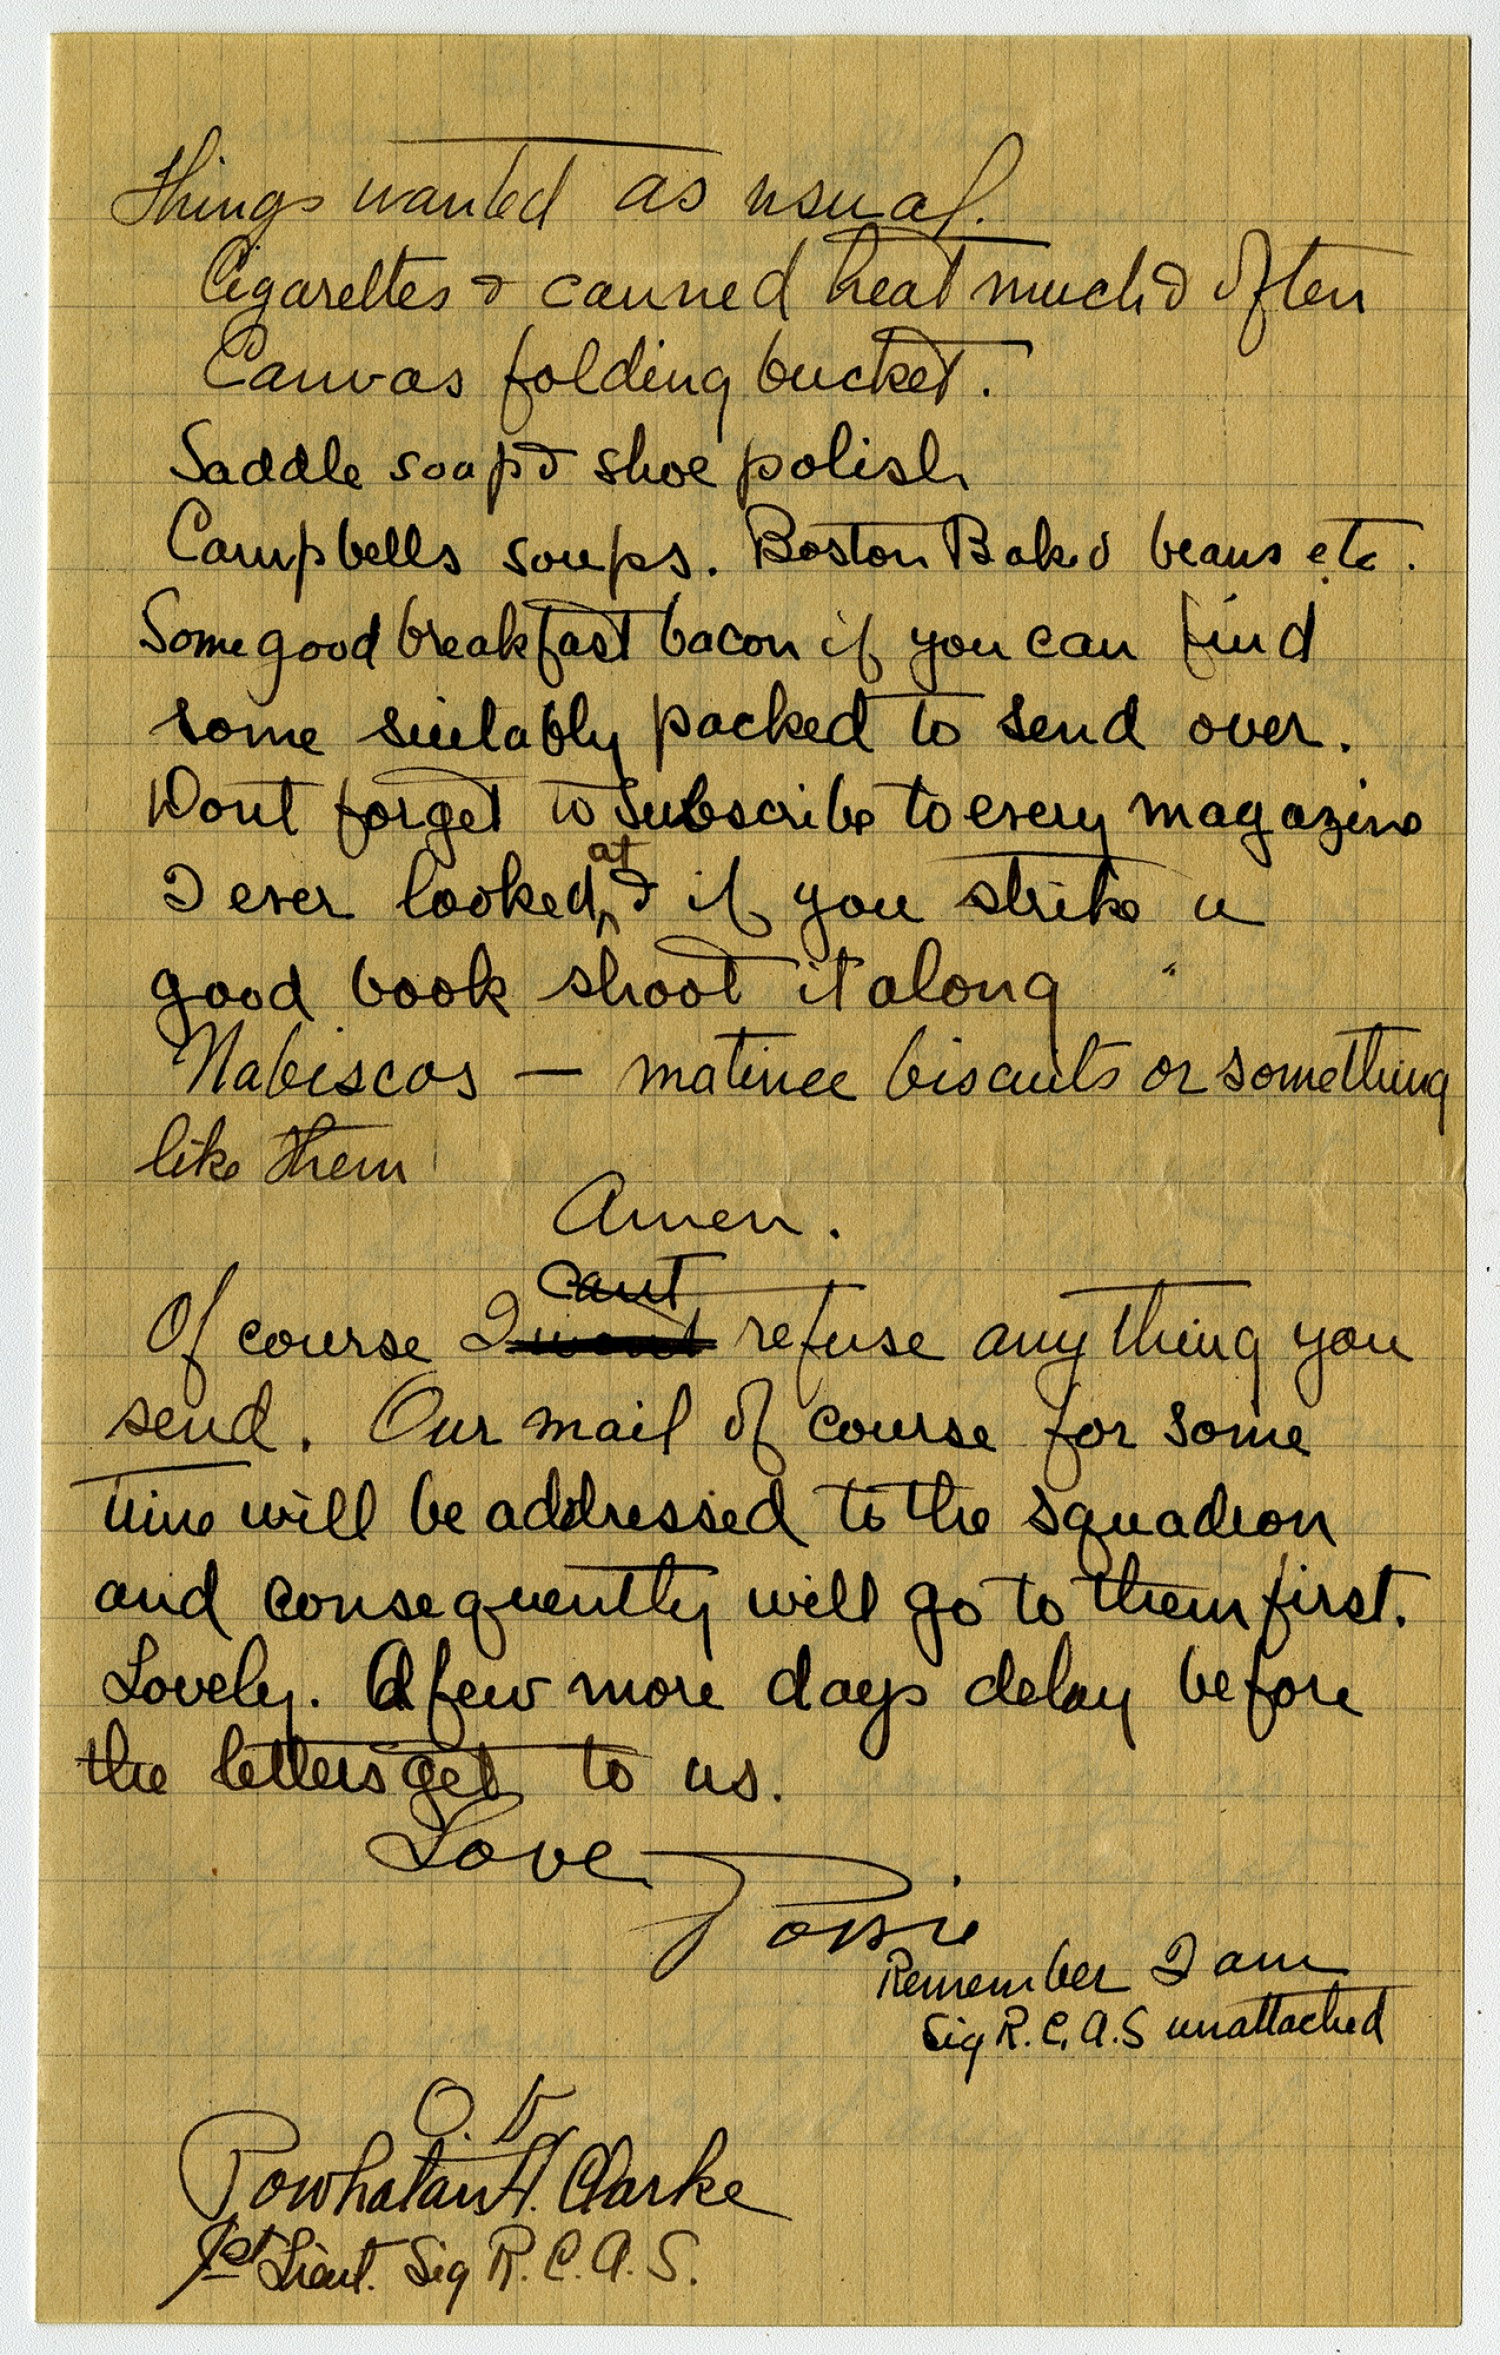 Things wanted as usual.
Cigarettes & canned heat much & often
Canvas folding bucket.
Saddle soap & shoe polish
Campbells soups. Boston Baked beans etc.
Some good breakfast bacon if you can find
some suitably packed to send over.
Dont forget to subscribe to every magazine
I ever looked at & if you strike a
good book shoot it along
Nabiscos — matinee biscuits or something
like them
Amen.
Of course I cant refuse anything you
send. Our mail of course for some
time will be addressed to the squadron
and consequently will go to them first.
Lovely. A few more days delay before
the letters get to us.
Love
Remember I am
Sig R.C.A.S unattached
O.K
Powhatan H. Clarke
1st Lieut. Sig R.C.A.S.